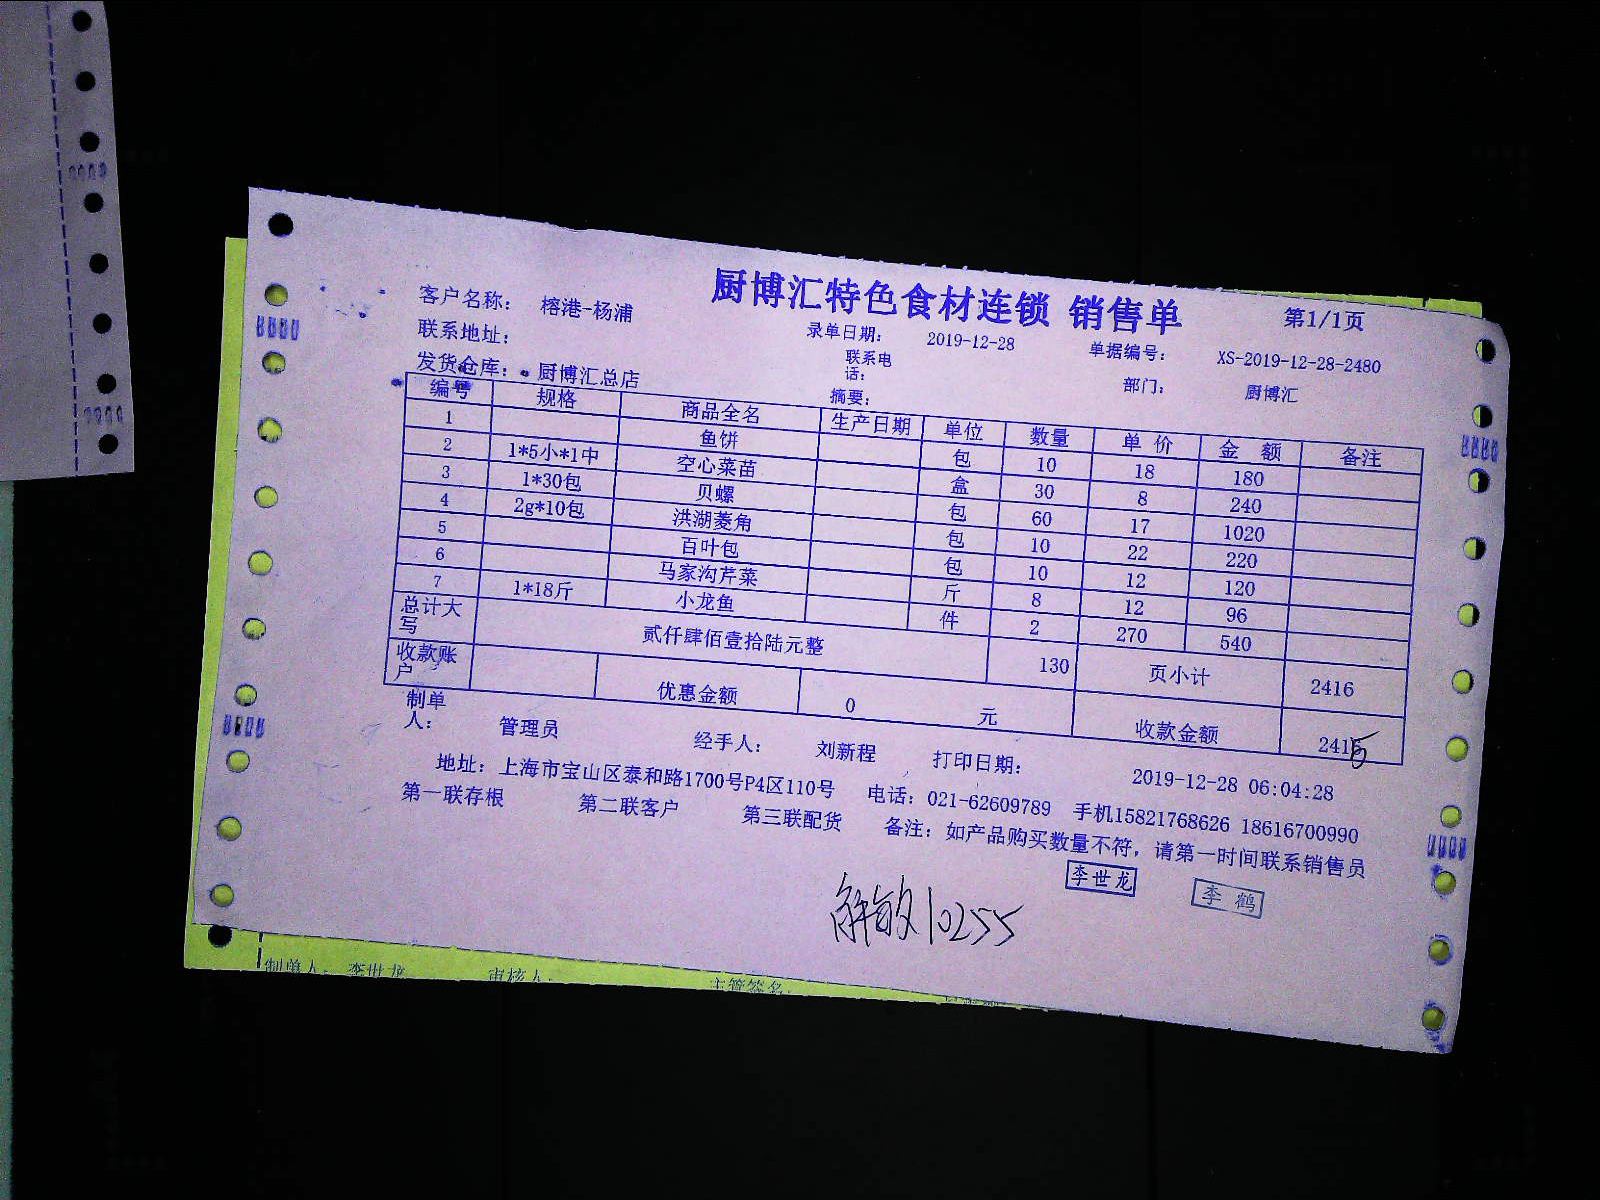 厨博汇特色食材连锁 销售单
第1/1页
客户名称: 榕港-杨浦
录单日期: 2019-12-28 单据编号: XS-2019-12-28-2480
联系地址: 联系电话: 部门: 厨博汇
发货仓库: 厨博汇总店 摘要:
编号 规格 商品全名 生产日期 单位 数量 单价 金额 备注
1 鱼饼 包 10 18 180
2 1*5小*1中 空心菜苗 盒 30 8 240
3 1*30包 贝螺 包 60 17 1020
4 2g*10包 洪湖菱角 包 10 22 220
5 百叶包 包 10 12 120
6 马家沟芹菜 斤 8 12 96
7 1*18斤 小龙鱼 件 2 270 540
总计大写 贰仟肆佰壹拾陆元整 130 页小计 2416
收款账户 优惠金额 0 元 收款金额 2415
制单人: 管理员 经手人: 刘新程 打印日期: 2019-12-28 06:04:28
地址: 上海市宝山区泰和路1700号P4区110号 电话: 021-62609789 手机15821768626 18616700990
第一联存根 第二联客户 第三联配货 备注: 如产品购买数量不符, 请第一时间联系销售员
李世龙 李鹤
解敏10255
制单人: 李世龙 审核人: 主管签名: